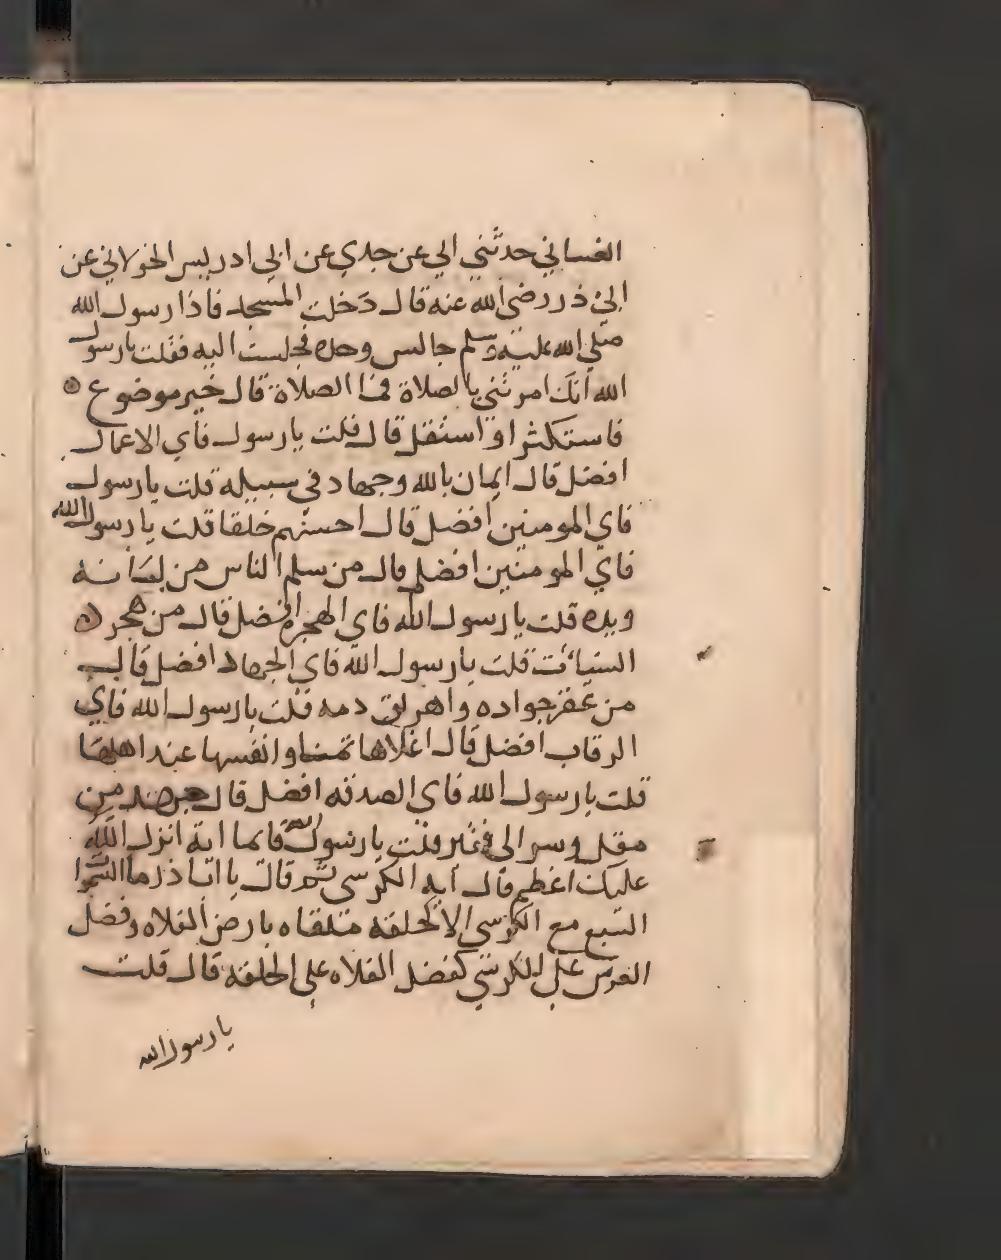 الغساني حدثني ابي عن جدي عن ابي ادريس الخولاني عن
ابي ذر رضي الله عنه قال دخلت المسجد فاذا رسول الله
صلي الله عليه وسلم جالس وحده فجلست اليه فقلت يارسول
الله انك امرتني بالصلاة فما الصلاة قال خير موضوع
فاستكثر او استقل قال قلت يارسول فاي الاعمال
افضل قال ايمان بالله وجهاد في سبيله قلت يارسول
فاي المومنين افضل قال احسنهم خلقا قلت يارسول الله
فاي المومنين افضل قال من سلم الناس من لسانه
ويده قلت يارسول الله فاي الهجرة افضل قال من هجر
السيات قلت يارسول الله فاي الجهاد افضل قال
من عقر جواده واهريق دمه قلت يارسول الله فاي
الرقاب افضل قال اغلاها ثمنا وانفسها عند اهلها
قلت يارسول الله فاي الصدقه افضل قال جهد من
مقل وسر الى فقير قلت يارسول الله فايما اية انزل الله
عليك اعظم قال اية الكرسي ثم قال يا ابا ذر ما السموات
السبع مع الكرسي الا كحلقه ملقاه بارض الفلاه وفضل
العرش على الكرسي كفضل الفلاه على الحلقة قال قلت
يا رسول الله